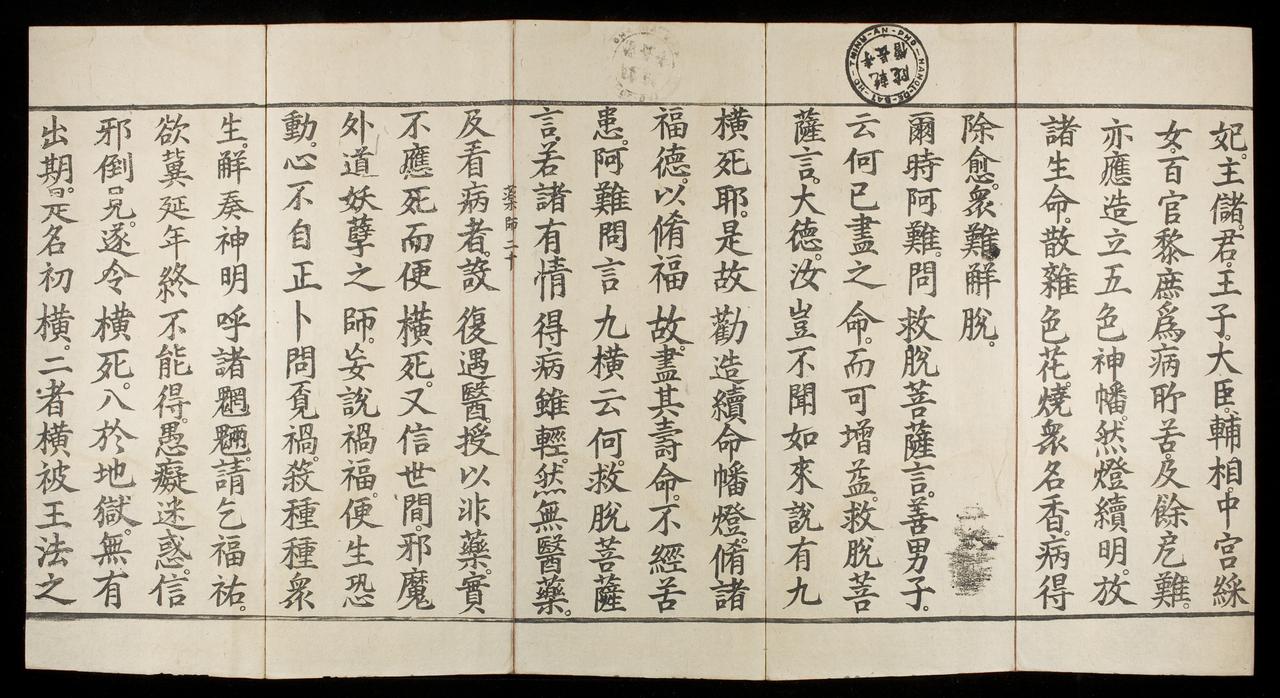 妃。主儲。君。王子。大臣。輔相。中宮綵
女。百官黎庶爲病所苦。及餘戹難。
亦應造立五色神幡。然燈續明。放
諸生命。散雜色花。燒衆名香。病得
除愈。衆難解脫。
爾時阿難。問救脫菩薩言。善男子。
云何已盡之命。而可增益。救脫菩
薩言。大德。汝豈不聞如來說有九
橫死耶。是故勸造續命幡燈。脩諸
福德。以脩福故。盡其壽命。不經苦
患。阿難問言九橫云何。救脫菩薩
言。若諸有情得病雖輕。然無醫藥。
藥師二十
及看病者。設復遇醫。授以非藥。實
不應死而便橫死。又信世間。邪魔
外道妖孽之師。妄說禍福。便生恐
動。心不自正卜問覓禍。殺種種衆
生。解奏神明呼諸魍魎。請乞福祐。
欲冀延年終不能得。愚癡迷惑。信
邪倒見。遂令橫死。入於地獄。無有
出期。是名初橫。二者橫被王法之
THINH-AN-PHO-HANOI-DE-DAI-HO